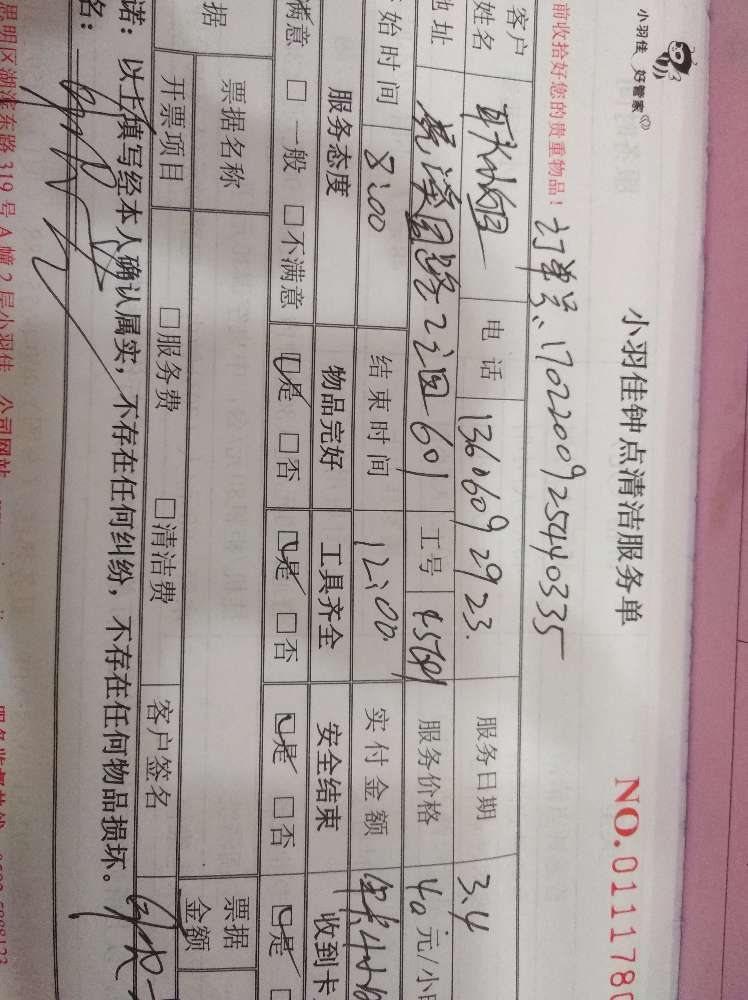 小羽佳 好管家
小羽佳钟点清洁服务单
NO.0111780
前收拾好您的贵重物品!
订单号:1702200925440335
客户姓名 电话 13606092923. 服务日期 3.4
地址 601 工号 服务价格 40元/小时
始时间 8:00 结束时间 12:00 实付金额
服务态度 物品完好 工具齐全 安全结束 收到卡
满意 □ 一般 □不满意 □是 □否 □是 □否 □是 □否 □是
据 票据名称 票据金额
开票项目 □服务费 □清洁费 客户签名
诺:以上填写经本人确认属实,不存在任何纠纷,不存在任何物品损坏。
名:
思明区湖滨东路319号A幢2层小羽佳 公司网站